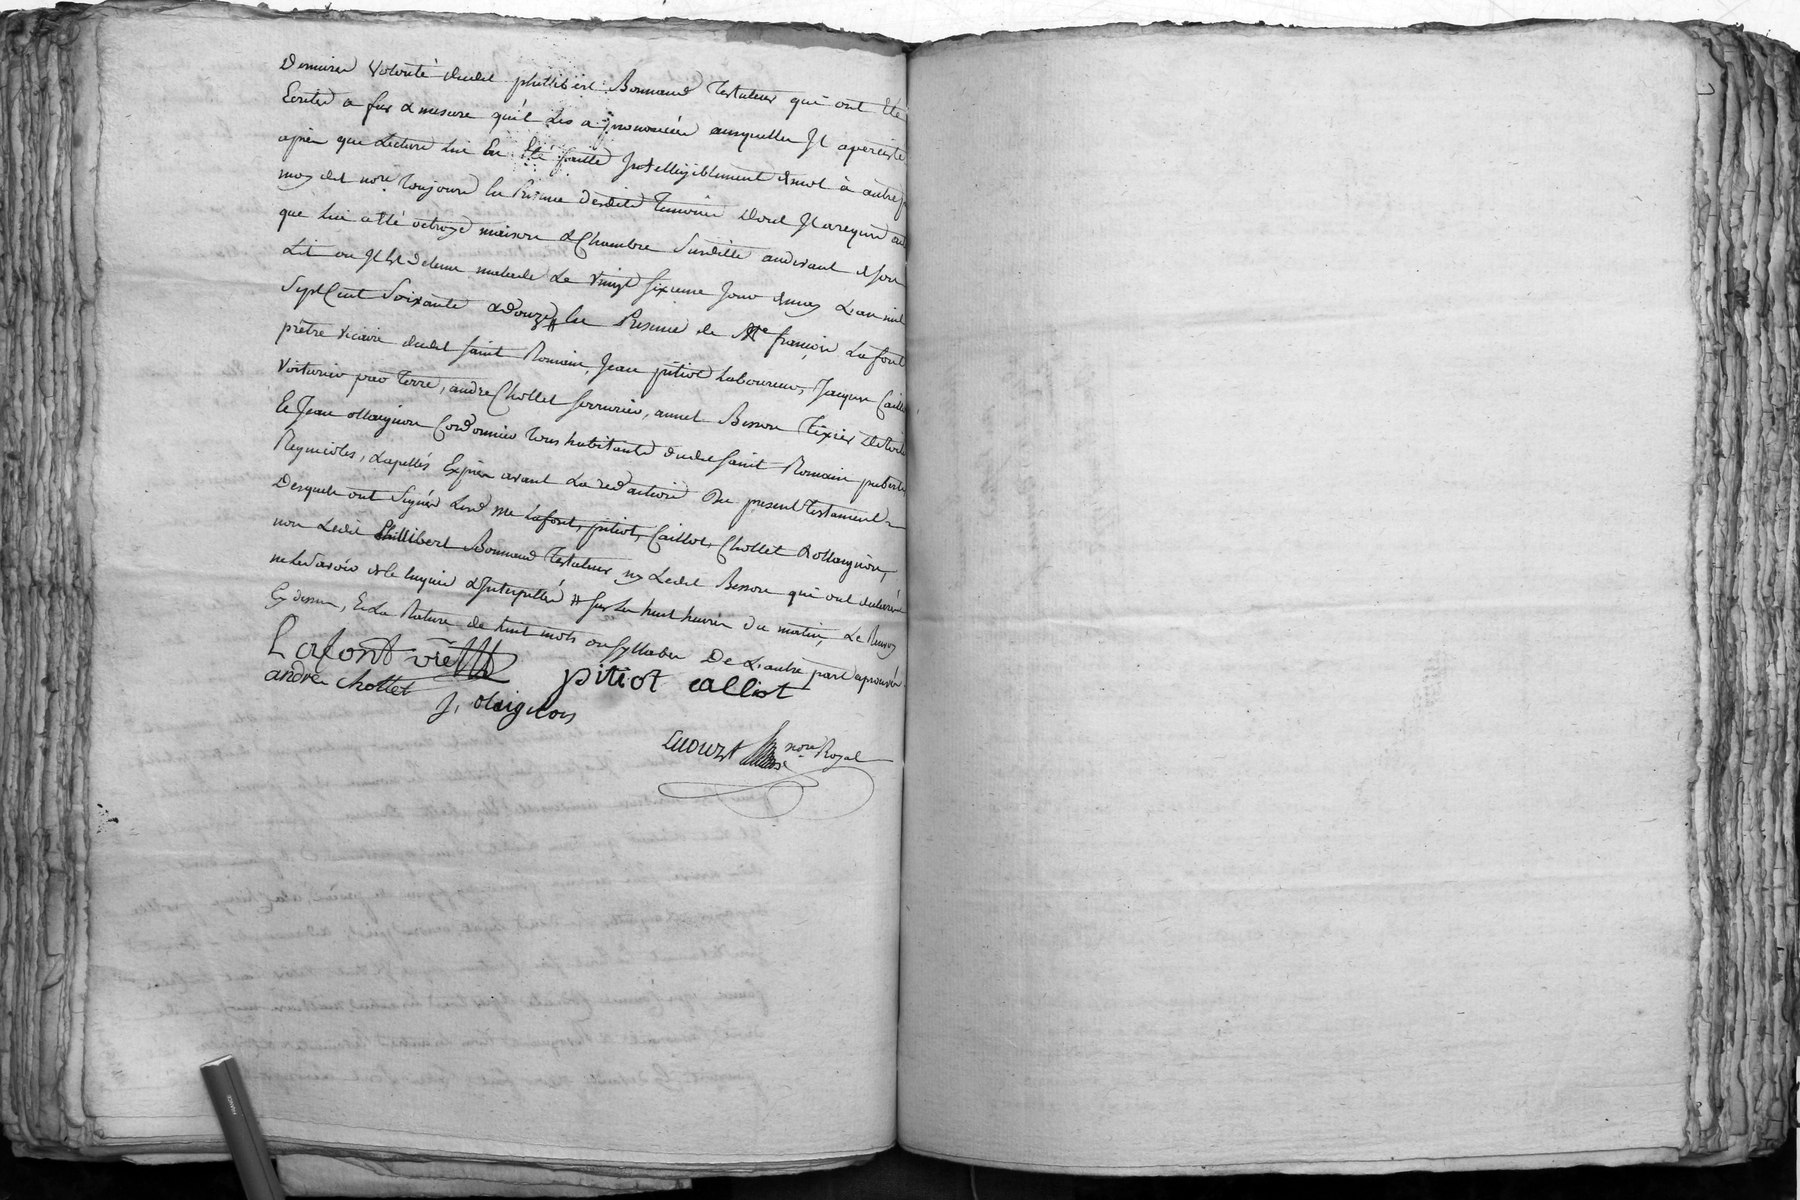 derniere volonté dudit phillibert Bonnaud Testateur qui ont été
Ecrites a fur & mesure qu'il Les a prononcées ausquelles Il a persisté
apres que Lecture lui En a été faitte Intelligiblement de mot à autre p
moy dit no.re Toujours En Presence desdits Temoins dont Il a requis acte
que lui a été octroyé maison & Chambre Susditte audevant de son
Lit ou Il Est detenu malade Le vingt sixieme Jour de may L'an mil
Sept Cent Soixante & douze En Presence de M.e françois Lafont
prêtre vicaire dudit saint Romain, Jean pitiot Laboureur, Jacques Caillot
Voiturier par Terre, andré Chollet serrurier, annet Besson Tixier de toile
Et Jean ollaignon Cordonnier Tous habitants dudit saint Romain puberts
Regnicoles, & apellés Exprès avant La redaction Du present Testament =
Desquels ont Signés Led. Me Lafont, pitiot, Caillot, Chollet & ollaignon,
non Ledit Phillibert Bonnaud Testateur ny Ledit Besson qui ont declaré
ne Le savoir de le Enquis & Interpellés # sur Les huit heures du matin, Le Renvoy
Cy dessus, Et La Rature de huit mots ou syllabes De L'autre part aprouvés
Lafont vic.re
pitiot calliot
andre chollet
J. olaignon
no.re Royal
FRANCE